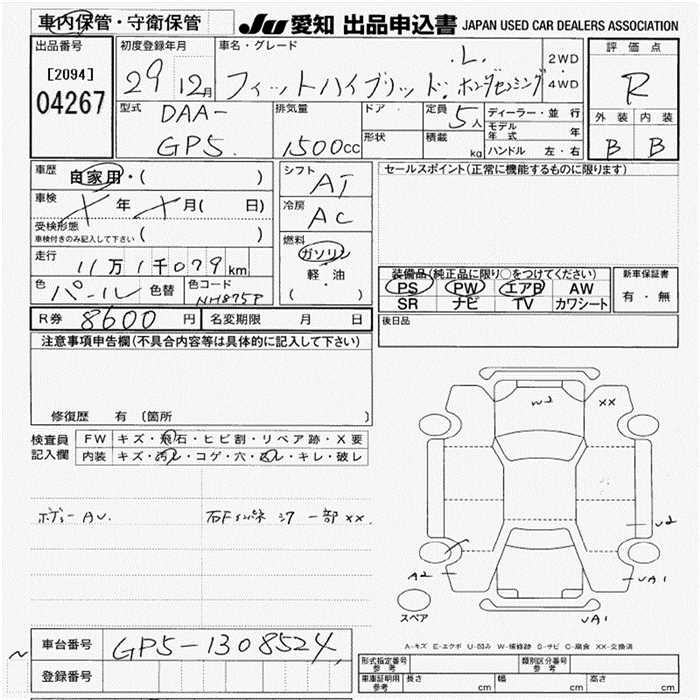 車内保管・守衛保管
JU 愛知 出品申込書 JAPAN USED CAR DEALERS ASSOCIATION
出品番号
[2094]
04267
初度登録年月
29 12月
車名・グレード
フィットハイブリッド. L. ホンダセンシング
2WD
・
4WD
評価点
R
外装 内装
B B
型式
DAA-
GP5.
排気量
1500cc
ドア
形状
定員
5人
積載
kg
ディーラー・並行
モデル年式 年
ハンドル 左・右
車歴
自家用・( )
車検
年 月( 日)
受検形態
車検付きのみ記入して下さい ( )
走行
11万1千079km
色
パール
色替
色コード
NH875P
シフト
AT
冷房
AC
燃料
ガソリン
軽・油
( )
セールスポイント(正常に機能するものに限ります)
装備品(純正品に限り○をつけてください)
PS PW エアB AW
SR ナビ TV カワシート
新車保証書
有・無
R券 8600円
名変期限 月 日
後日品
注意事項申告欄(不具合内容等は具体的に記入して下さい)
修復歴 有 〔箇所 〕
検査員
記入欄
FW キズ・飛石・ヒビ割・リペア跡・X要
内装 キズ・汚レ・コゲ・穴・凸レ・キレ・破レ
ボデーAU.
石Fインパネ 一部××.
W2
××
U2
A2
UA1
UA1
スペア
A-キズ E-エクボ U-凹み W-補修跡 S-サビ C-腐食 ××-交換済
車台番号
GP5-1308524
登録番号
形式指定番号
参考
類別区分番号
参考
車庫証明用
参考
長さ cm
幅 cm
高さ cm